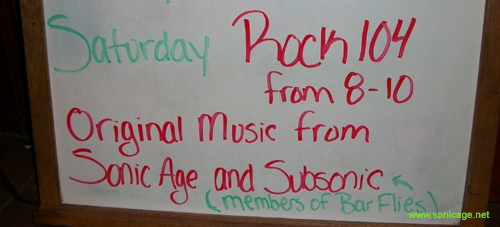 Saturday Rock 104
from 8-10
Original Music from
Sonic Age and Subsonic
(members of Bar Flies)
www.sonicage.net